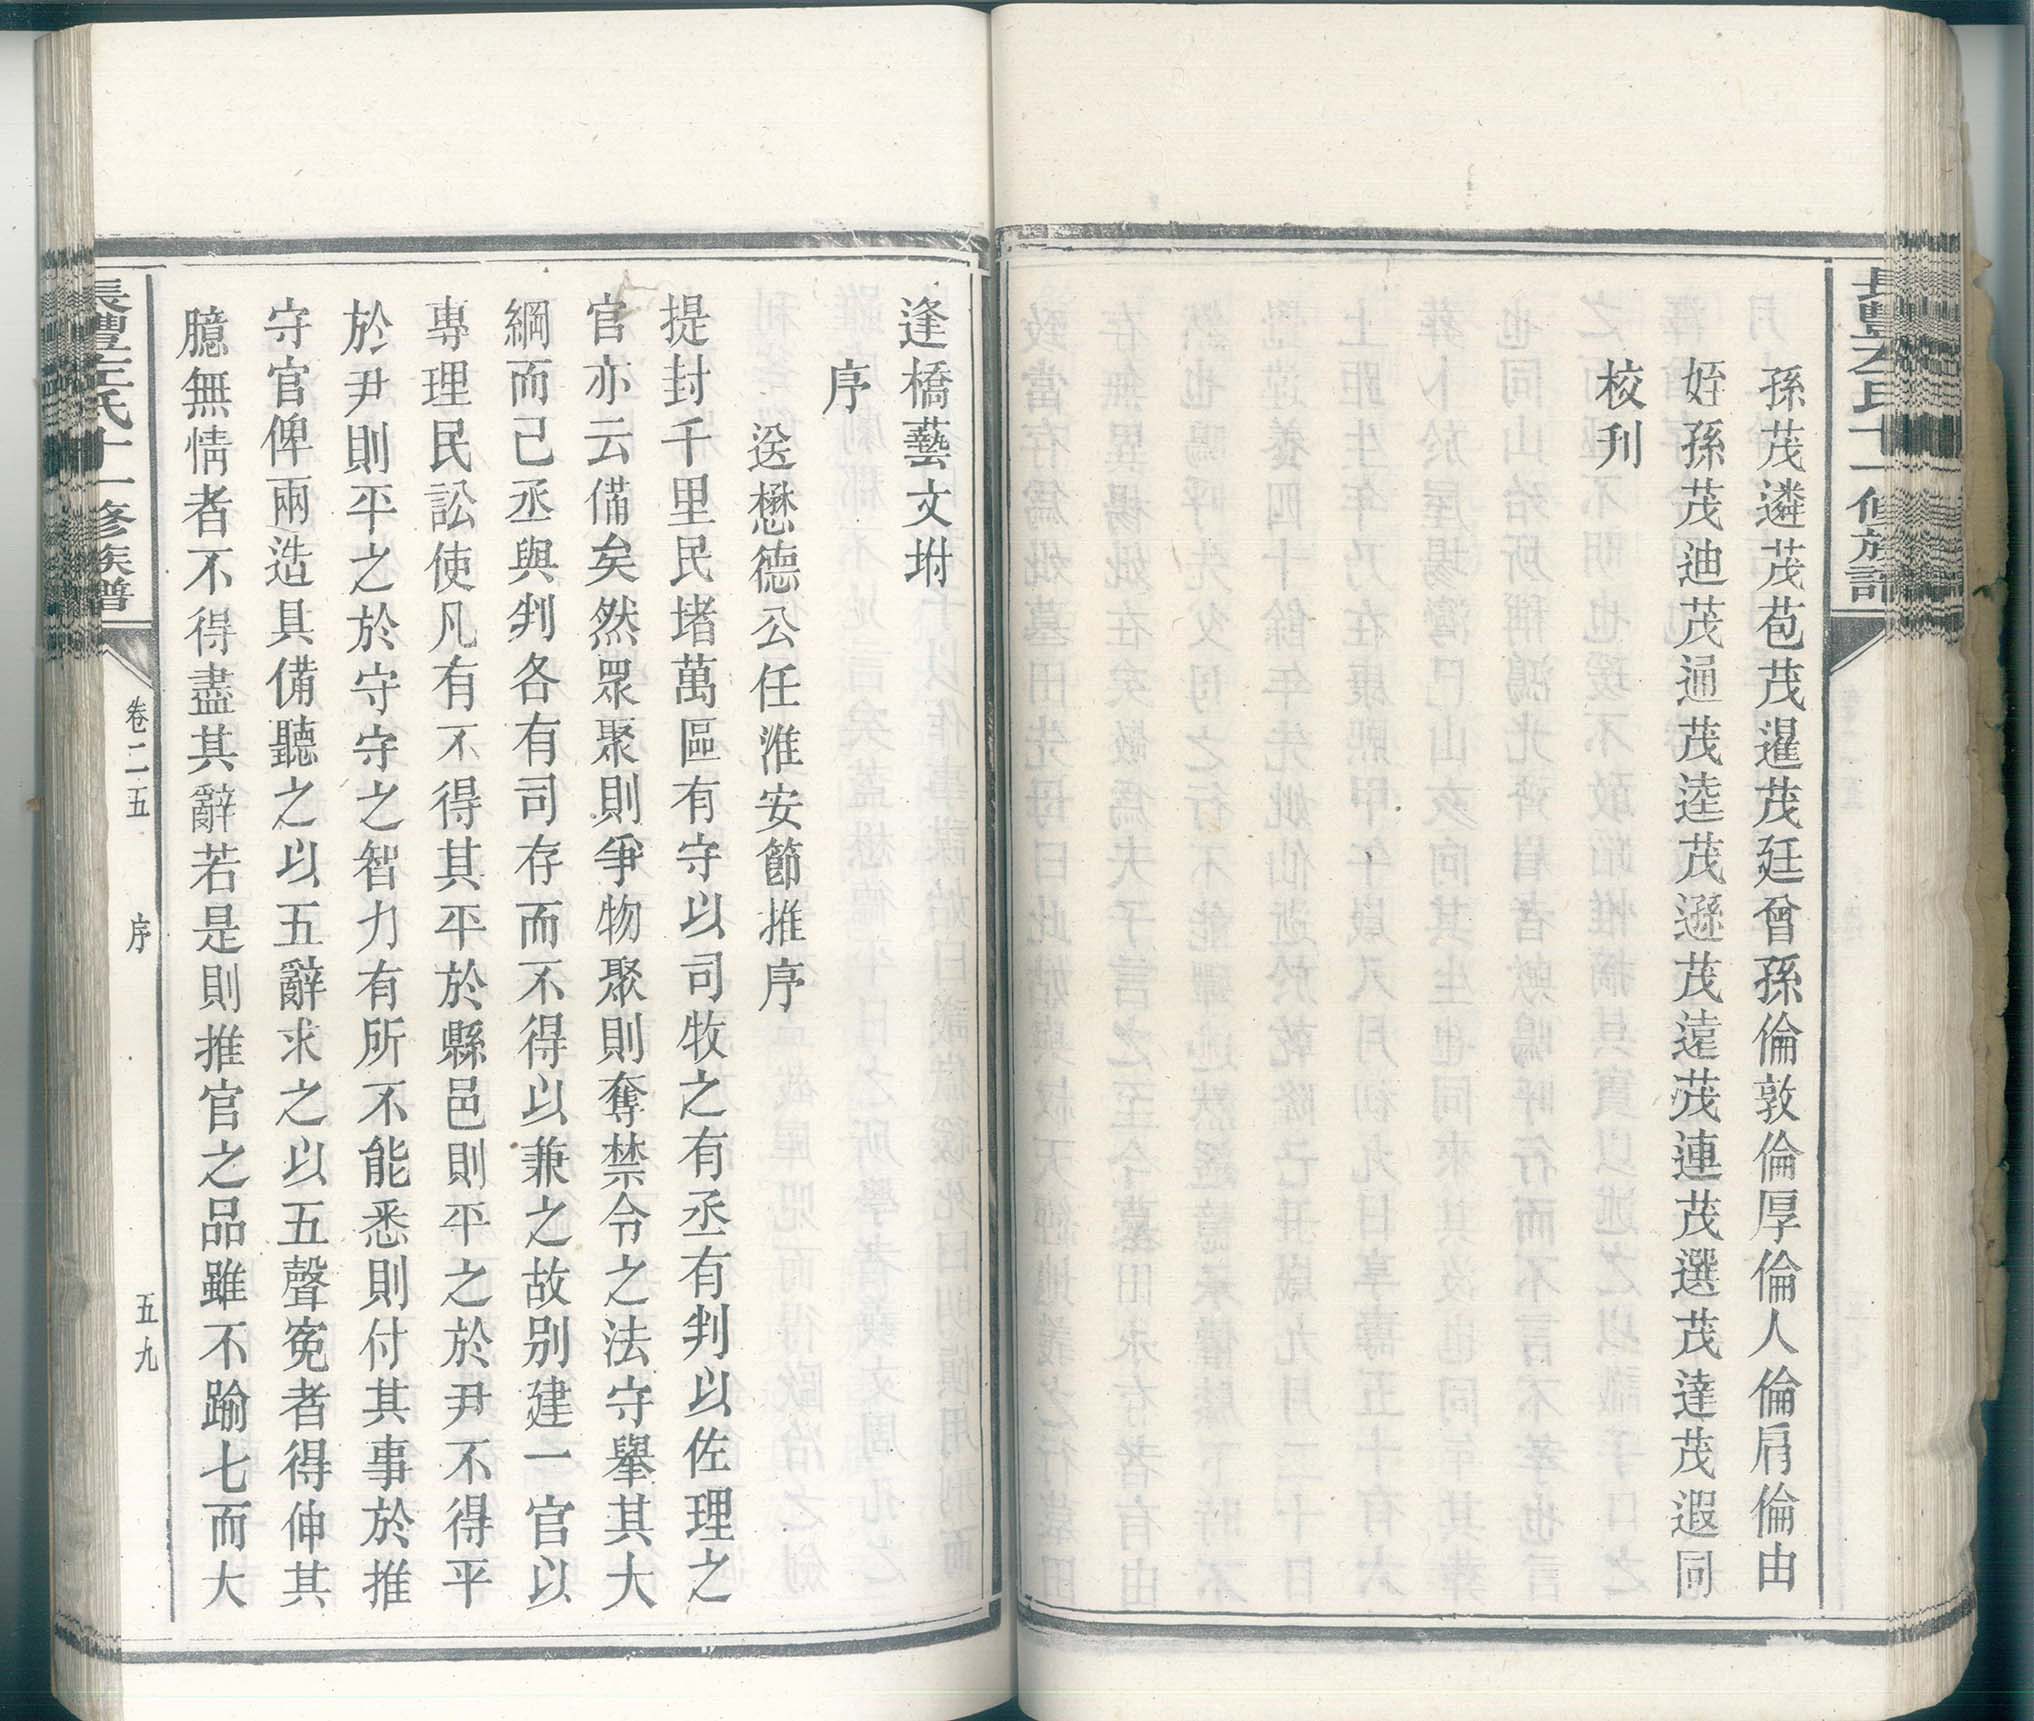 長豐左氏十一修族譜
孫茂遴茂苞茂暹茂廷曾孫倫敦倫厚倫人倫肩倫由
姪孫茂迪茂通茂逵茂遜茂遠茂連茂選茂達茂遐同
校刊
逢橋藝文坿
序
送懋德公任淮安節推序
提封千里民堵萬區有守以司牧之有丞有判以佐理之
官亦云備矣然眾聚則爭物聚則奪禁令之法守舉其大
綱而已丞與判各有司存而不得以兼之故别建一官以
專理民訟使凡有不得其平於縣邑則平之於尹不得平
於尹則平之於守守之智力有所不能悉則付其事於推
守官俾兩造具備聽之以五辭求之以五聲寃者得伸其
臆無情者不得盡其辭若是則推官之品雖不踰七而大
長豐左氏十一修族譜
卷二五
序
五九